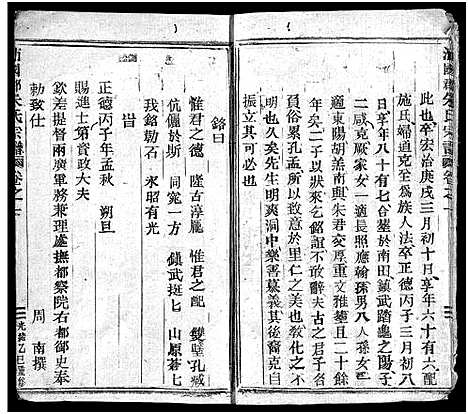 沛國郡朱氏宗譜 卷之一
此也卒宏治庚戌三月初十日享年六十有六配
施氏婦道克至爲族人法卒正德丙子三月初八
日享年八十有七合墓于墓南田鎮武踏龜之陽子
二咸克厥家女一適長照應翰孫男八人孫女二
適東陽胡盖南與朱君交厚重文雅塾且二十餘
年矣二子以狀來乞銘誼不敢辭夫古之君子名
世者屢累孔孟所以言里仁之美也敎化之不
明也久矣先生明爽洞中樂善篤義其後裔克自
振立其可必也
銘曰
惟君之德 隆古淳龐 惟君之配 雙璧孔臧
伉儷於斯 同窀一方 鎮武挺七 山原蒼七
我銘勒石 永昭有光
旹
正德丙子年孟秋 朔旦
賜進士第資政大夫
欽差提督兩廣軍務兼理處撫都察院右都御史奉
勅致仕 周 南撰
沛國郡朱氏宗譜 卷之一
光緒乙巳重修